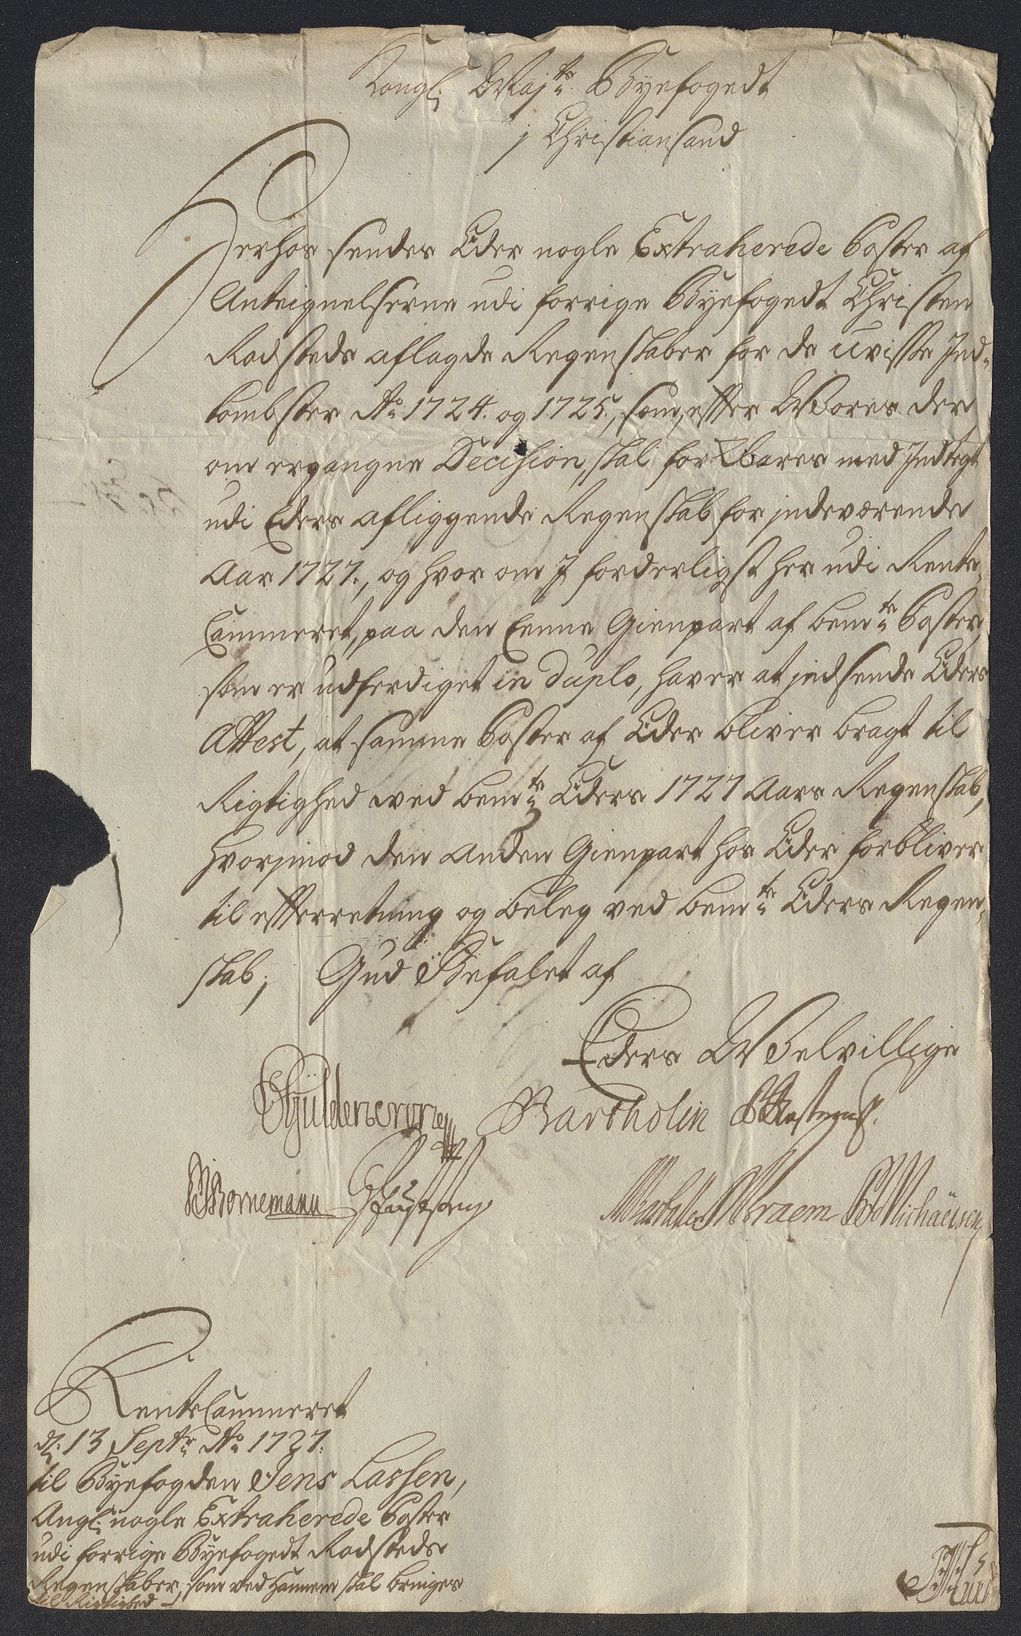 Kongl: Maj:ts Byefogedt
j Christiansand
Herhos sendes Eder nogle Extraherede Poster af
Anteignelserne udi forrige Byefogedt Christen
Rodsteds aflagde Regenskaber for de uvisse Ind-
kombster Ao 1724. og 1725., som, effter Wores der
om ergangne Decision, skal forklares med Indtegt
udi Eders afliggende Regenskab for indeværende
Aar 1727., og hvor om I forderligst her udi Rente-
Cammeret, paa den Eenne Gienpart af bemte Poster
som er udferdiget in duplo, haver at indsende Eders
Attest, at samme Poster af Eder bliver bragt til
Rigtighed ved bemte Eders 1727 Aars Regenskab,
hvorjmod den anden Gienpart hos Eder forbliver
til effterretning og beleg ved bemte Eders Regen-
skab; Gud Befalet af
Eders Welvillige
Güldencrone Bartholin
Bornemann Michaelsen
RenteCammeret
d: 13 Septr Ao 1727.
til Byefogden Jens Lassen,
Angl: nogle Extraherede Poster
udi forrige Byefogedt Rodsteds
Regenskaber, som ved hannem skal bringes
til Rigtighed